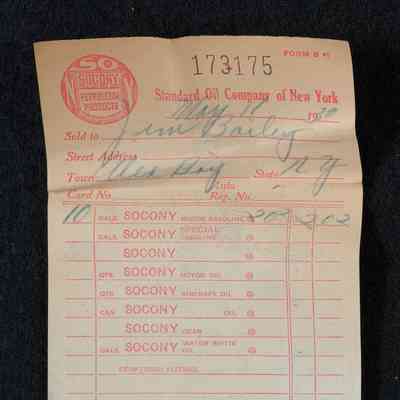 FORM B
173175
SO
SOCONY
PETROLEUM
PRODUCTS
Standard Oil Company of New York
May 19
Sold to Jim Bailey
Street Address
Town Alex Bay State N Y
Card No. Auto Reg. No.
10 GALS. SOCONY MOTOR GASOLINE 20 2 02
GALS. SOCONY SPECIAL GASOLINE @
SOCONY @
QTS. SOCONY MOTOR OIL @
QTS. SOCONY AIRCRAFT OIL @
CAN SOCONY OIL @
SOCONY GEAR @
GALS. SOCONY WATER WHITE OIL @